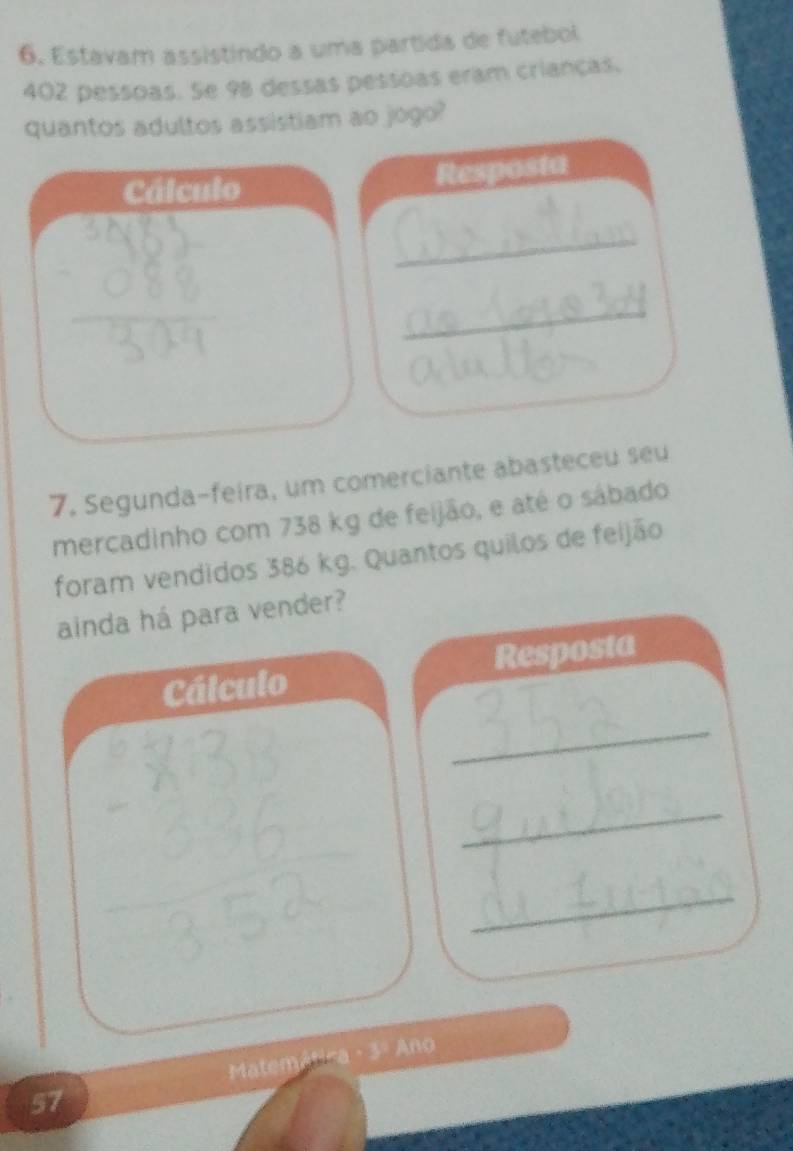 6. Estavam assistindo a uma partida de futebol
402 pessoas. Se 98 dessas pessoas eram crianças,
quantos adultos assistiam ao jogo?
Cálculo
Resposta
-
ao 304
7. Segunda-feira, um comerciante abasteceu seu
mercadinho com 738 kg de feijão, e até o sábado
foram vendidos 386 kg. Quantos quilos de feijão
ainda há para vender?
Cálculo
Resposta
352
-
352
de
Matemática · 3º Ano
57